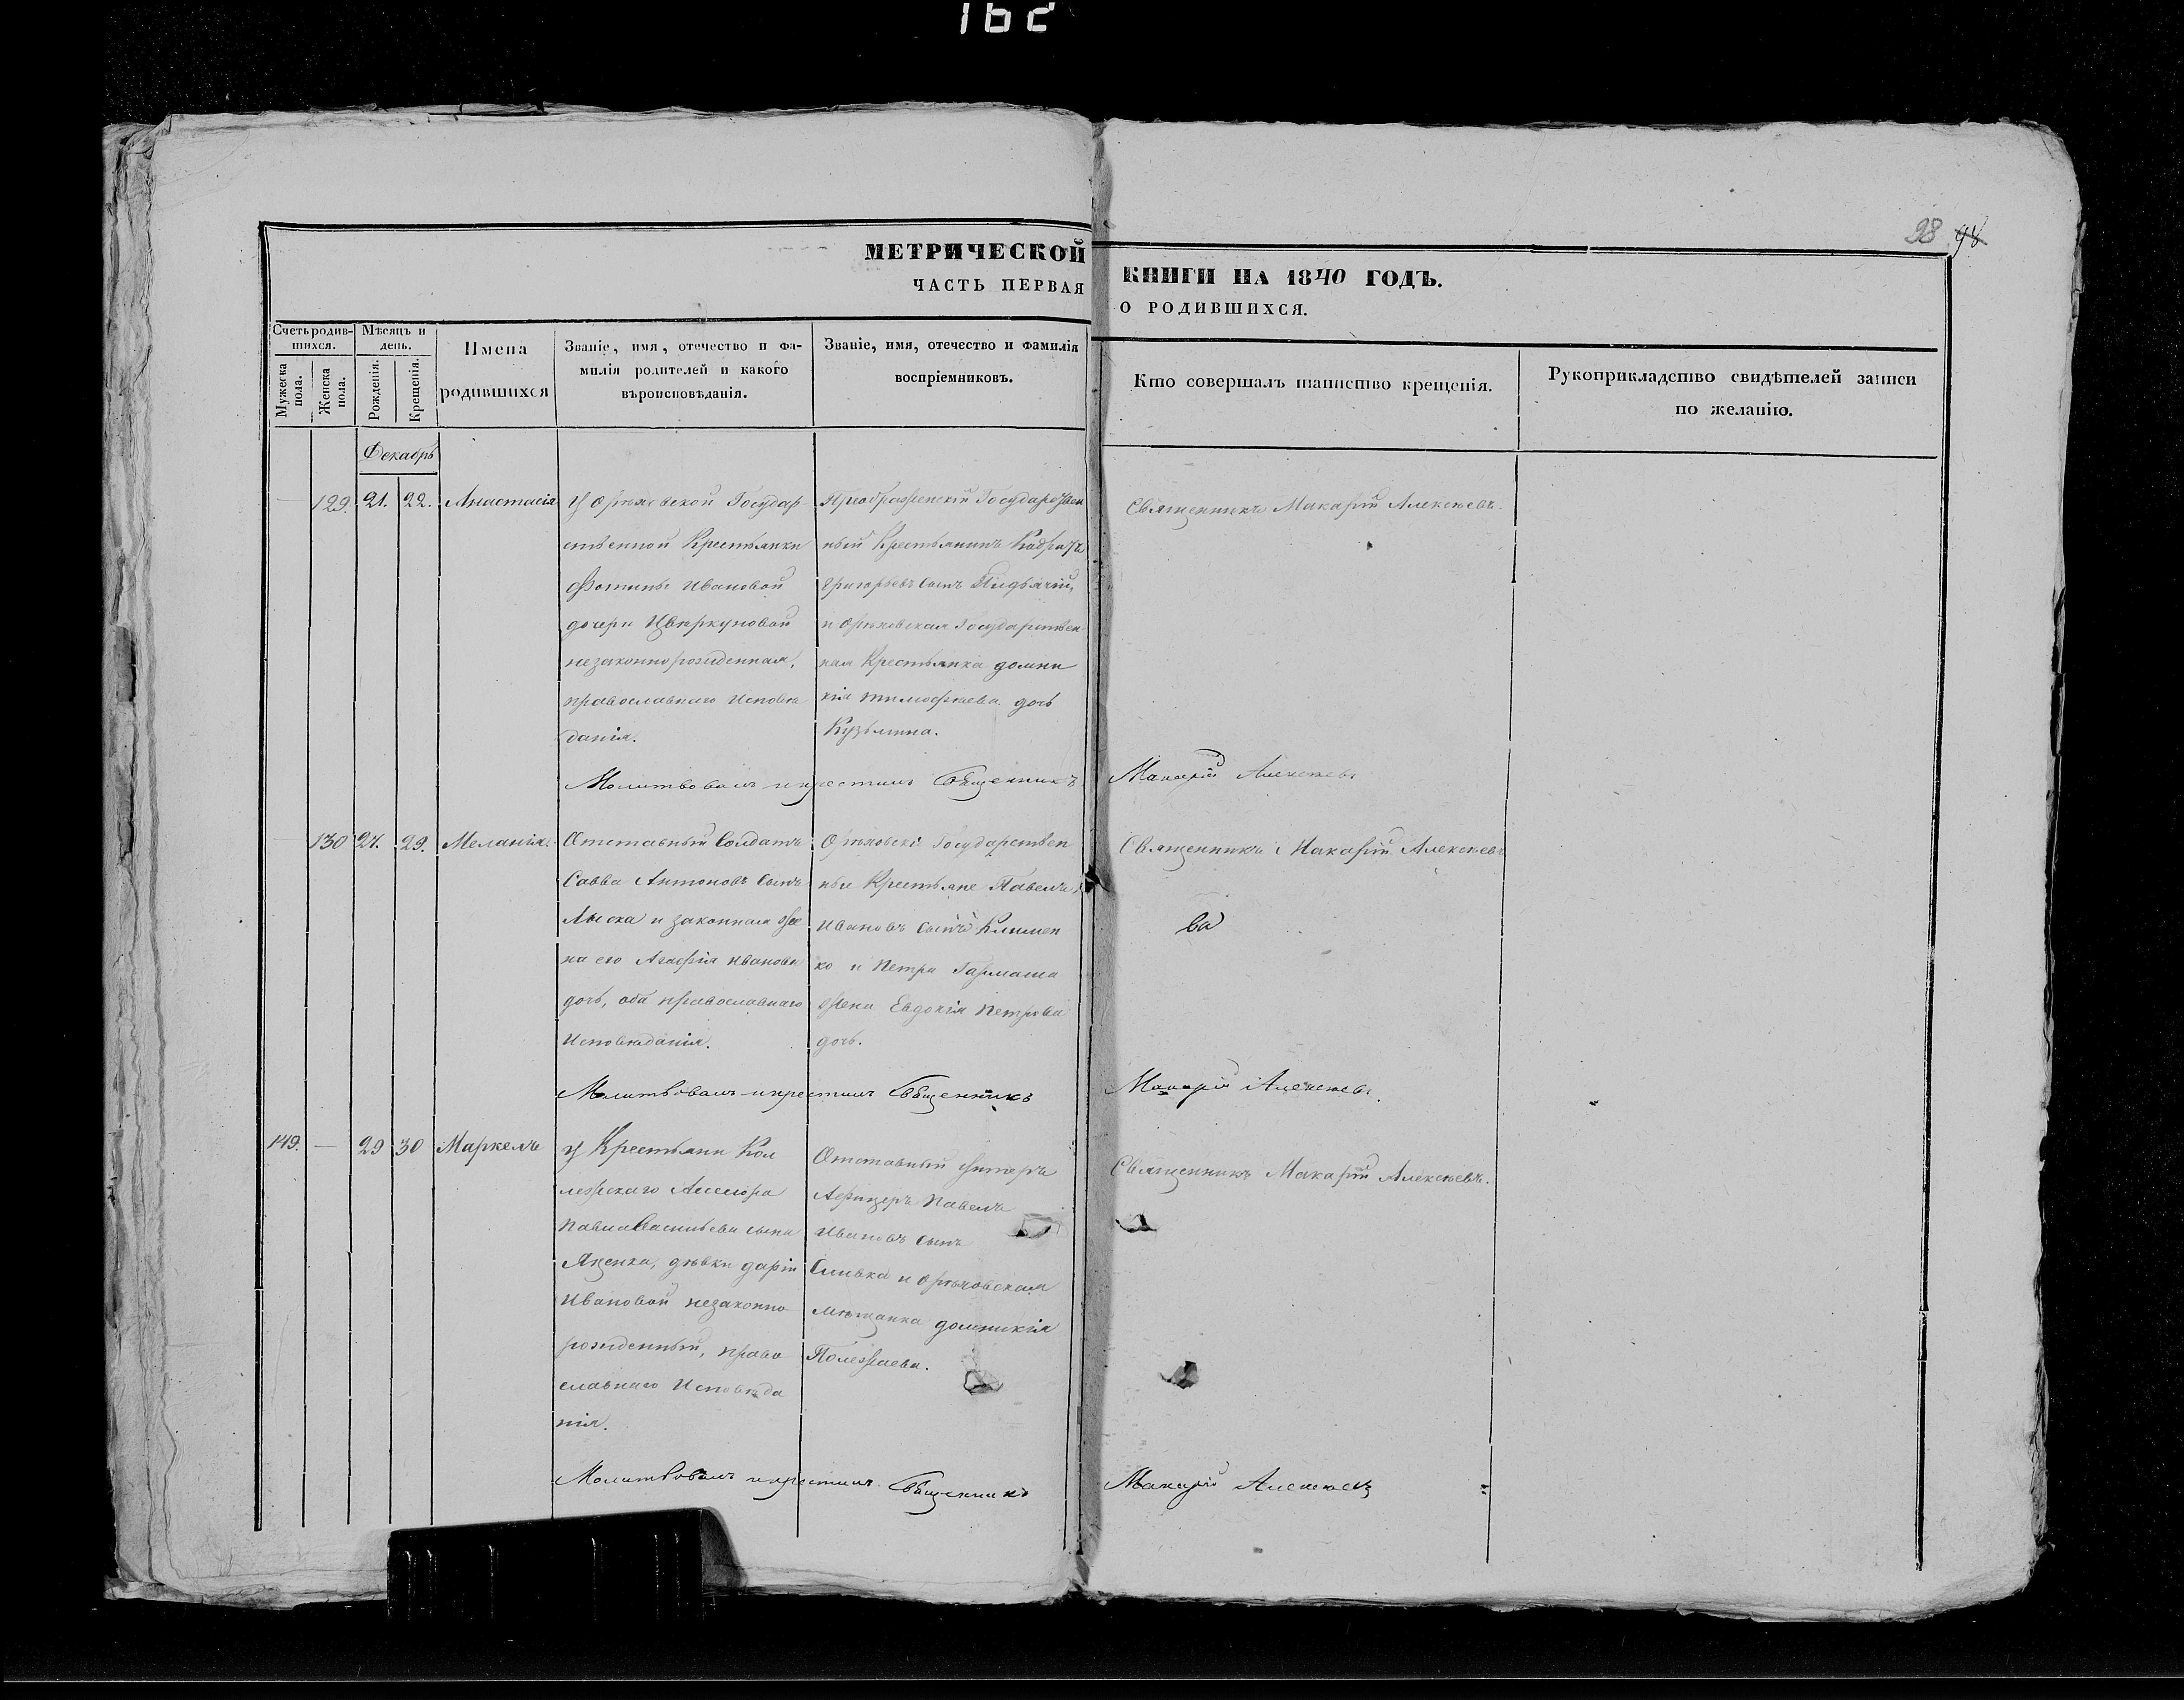 162
98 98
МЕТРИЧЕСКОЙ КНИГИ НА 1840 ГОДЪ.
ЧАСТЬ ПЕРВАЯ О РОДИВШИХСЯ.
Счетъ родившихся.
Мужеска пола.
Женска пола.
Мѣсяцъ и день.
Рожденія.
Крещенія.
Имена родившихся
Званіе, имя, отечество и фамилія родителей и какого вѣроисповѣданія.
Званіе, имя, отечество и фамилія воспріемниковъ.
Кто совершалъ таинство крещенія.
Рукоприкладство свидѣтелей записи по желанію.
Декабрь
129. 21. 22. Анастасія
У Орѣховской Государ-
ственной Крестьянки
Фотиньи Ивановой
дочери Цвѣркуновой
незаконнорожденная,
православнаго Исповѣ
данія.
Преображенскій Государствен
ный Крестьянинъ
Григорьевъ сынъ
и Орѣховская Государствен
ная Крестьянка домни
кія тимофѣева дочь
Кузьмина.
Священникъ Макарій Алексѣевъ.
Молитвовалъ и крестилъ Священникъ Макарій Алексѣевъ
130 27. 29. Меланія.
Отставный Солдатъ
Савва Антоновъ Сынъ
Лыска и законная же
на его Агафія иванова
дочь, оба православнаго
Исповѣданія.
Орѣховскіе Государствен
ные Крестьяне Павелъ
Ивановъ Сынъ Климен
ко и Петра Гармаша
жена Евдокія Петрова
дочь.
Священникъ Макарій Алексѣевъ
ва
Молитвовалъ и крестилъ Священникъ Макарій Алексѣевъ.
149. — 29 30 Маркелъ
У Крестьянки Кол
лежскаго Ассесора
Павла Васильева сына
Яценка, дѣвки даріи
Ивановой незаконно
рожденный, право
славнаго Исповѣда
нія.
Отставный Унтеръ
Афицеръ Павелъ
Ивановъ Сынъ
Сливка и Орѣховская
мѣщанка домникія
Полежаева.
Священникъ Макарій Алексѣевъ.
Молитвовалъ и крестилъ Священникъ Макарій Алексѣевъ